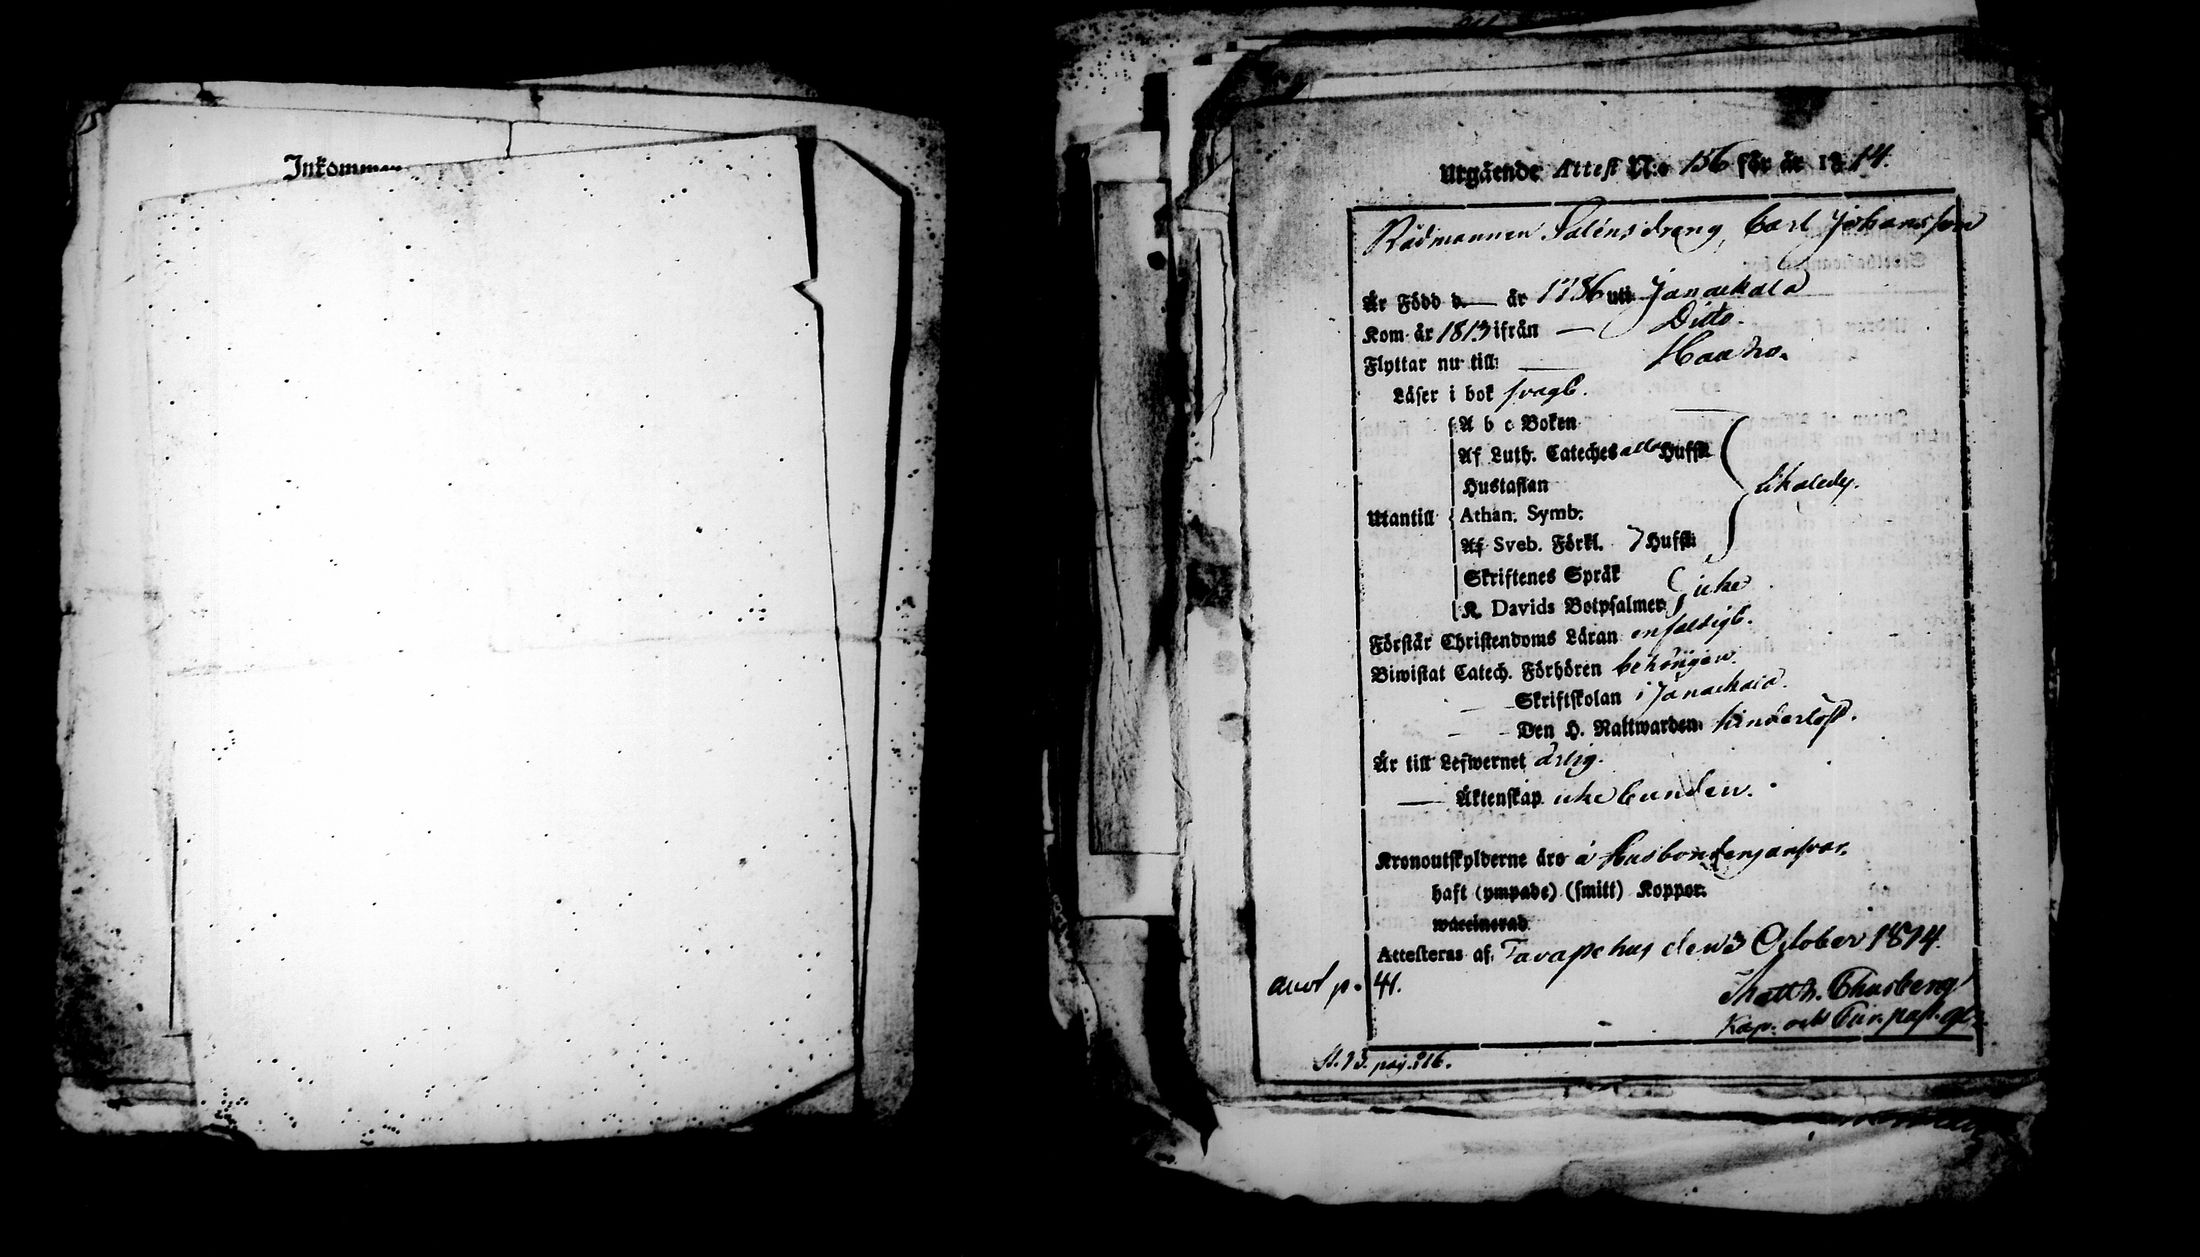 Inkommen
Utgående Attest N:o 156 för år 1814.
Rådmannen Saléns dreng, Carl Johansson
Är Född d. — år 1786 uti Janackala
Kom år 1813 ifrån — Ditto.
Flyttar nu till: — Hauho.
Läser i bok svagt.
A b c Boken
Af Luth. Cateches alla Huffst.
Hustaflan
likaledes.
Utantill Athan. Symb.
Af Sveb. Förkl. 7 Huffst:
Skriftenes Språk
icke
K. Davids Botpsalmer
Förstår Christendoms Läran enfaldigt.
Biwistat Catech. Förhören behörigen.
— Skriftskolan i Janackala.
- - Den H. Nattwarden hinderlöst.
Är till Lefwernet ärlig.
— Äktenskap icke bunden.
Kronoutskylderne äro å Husbondens ansvar.
haft (ympade) (smitt) Koppor.
waccinerad
Attesteras af. Tavastehus den 3 October 1814.
p. 41.
Matth. Chusberg
Kap. och
pag. 216.